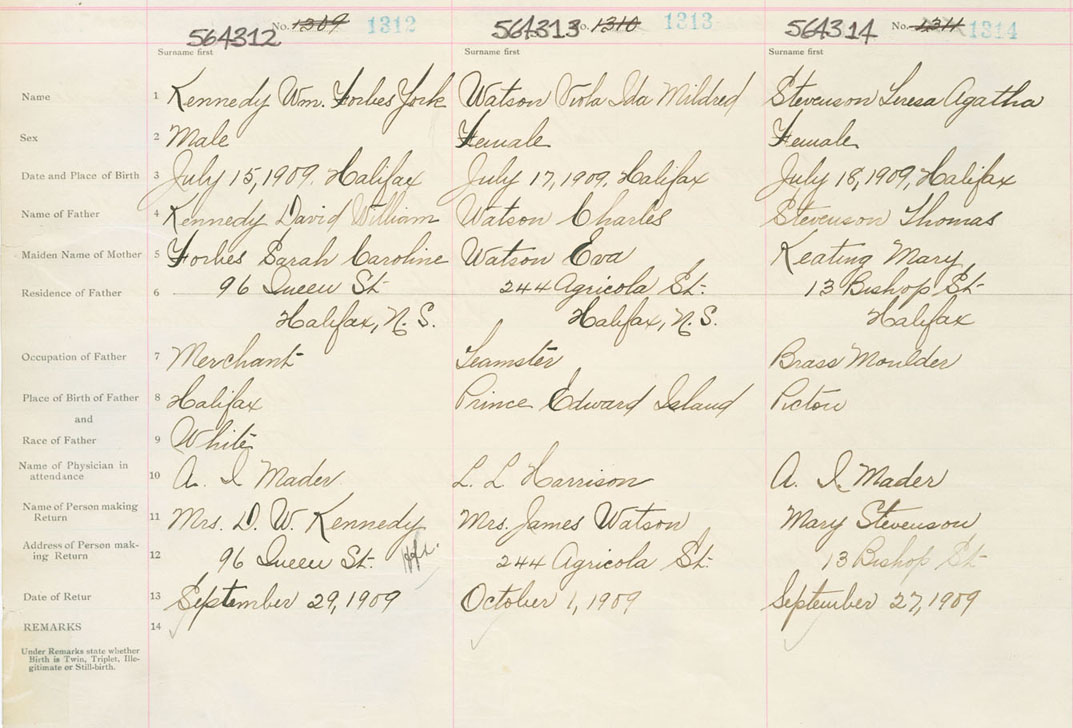 564312 No. 1309 1312 564313 No. 1310 1313 564314 No. 1311 1314
Surname first Surname first Surname first
Name 1 Kennedy Wm. Forbes York Watson Viola Ida Mildred Stevenson Teresa Agatha
Sex 2 Male Female Female
Date and Place of Birth 3 July 15, 1909. Halifax July 17, 1909. Halifax July 18, 1909, Halifax
Name of Father 4 Kennedy David William Watson Charles Stevenson Thomas
Maiden Name of Mother 5 Forbes Sarah Caroline Watson Eva Keating Mary
Residence of Father 6 96 Queen St. 244 Agricola St. 13 Bishop St.
Halifax, N. S. Halifax, N. S. Halifax
Occupation of Father 7 Merchant Teamster Brass Moulder
Place of Birth of Father 8 Halifax Prince Edward Island Pictou
and
Race of Father 9 White
Name of Physician in attendance 10 A. I. Mader L. L Harrison A. I. Mader
Name of Person making Return 11 Mrs. D. W. Kennedy Mrs. James Watson Mary Stevenson
Address of Person making Return 12 96 Queen St. 244 Agricola St. 13 Bishop St.
Date of Retur 13 September 29, 1909 October 1, 1909 September 27, 1909
REMARKS 14
Under Remarks state whether
Birth is Twin, Triplet, Ille-
gitimate or Still-birth.